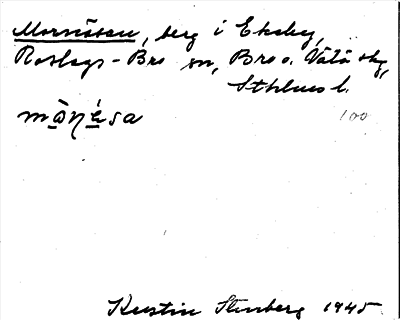 Mornäsan, berg i Ekeby,
Roslags-Bro sn, Bro o. Vätö skg,
Sthlms l.
100
Kerstin Stenberg 1945